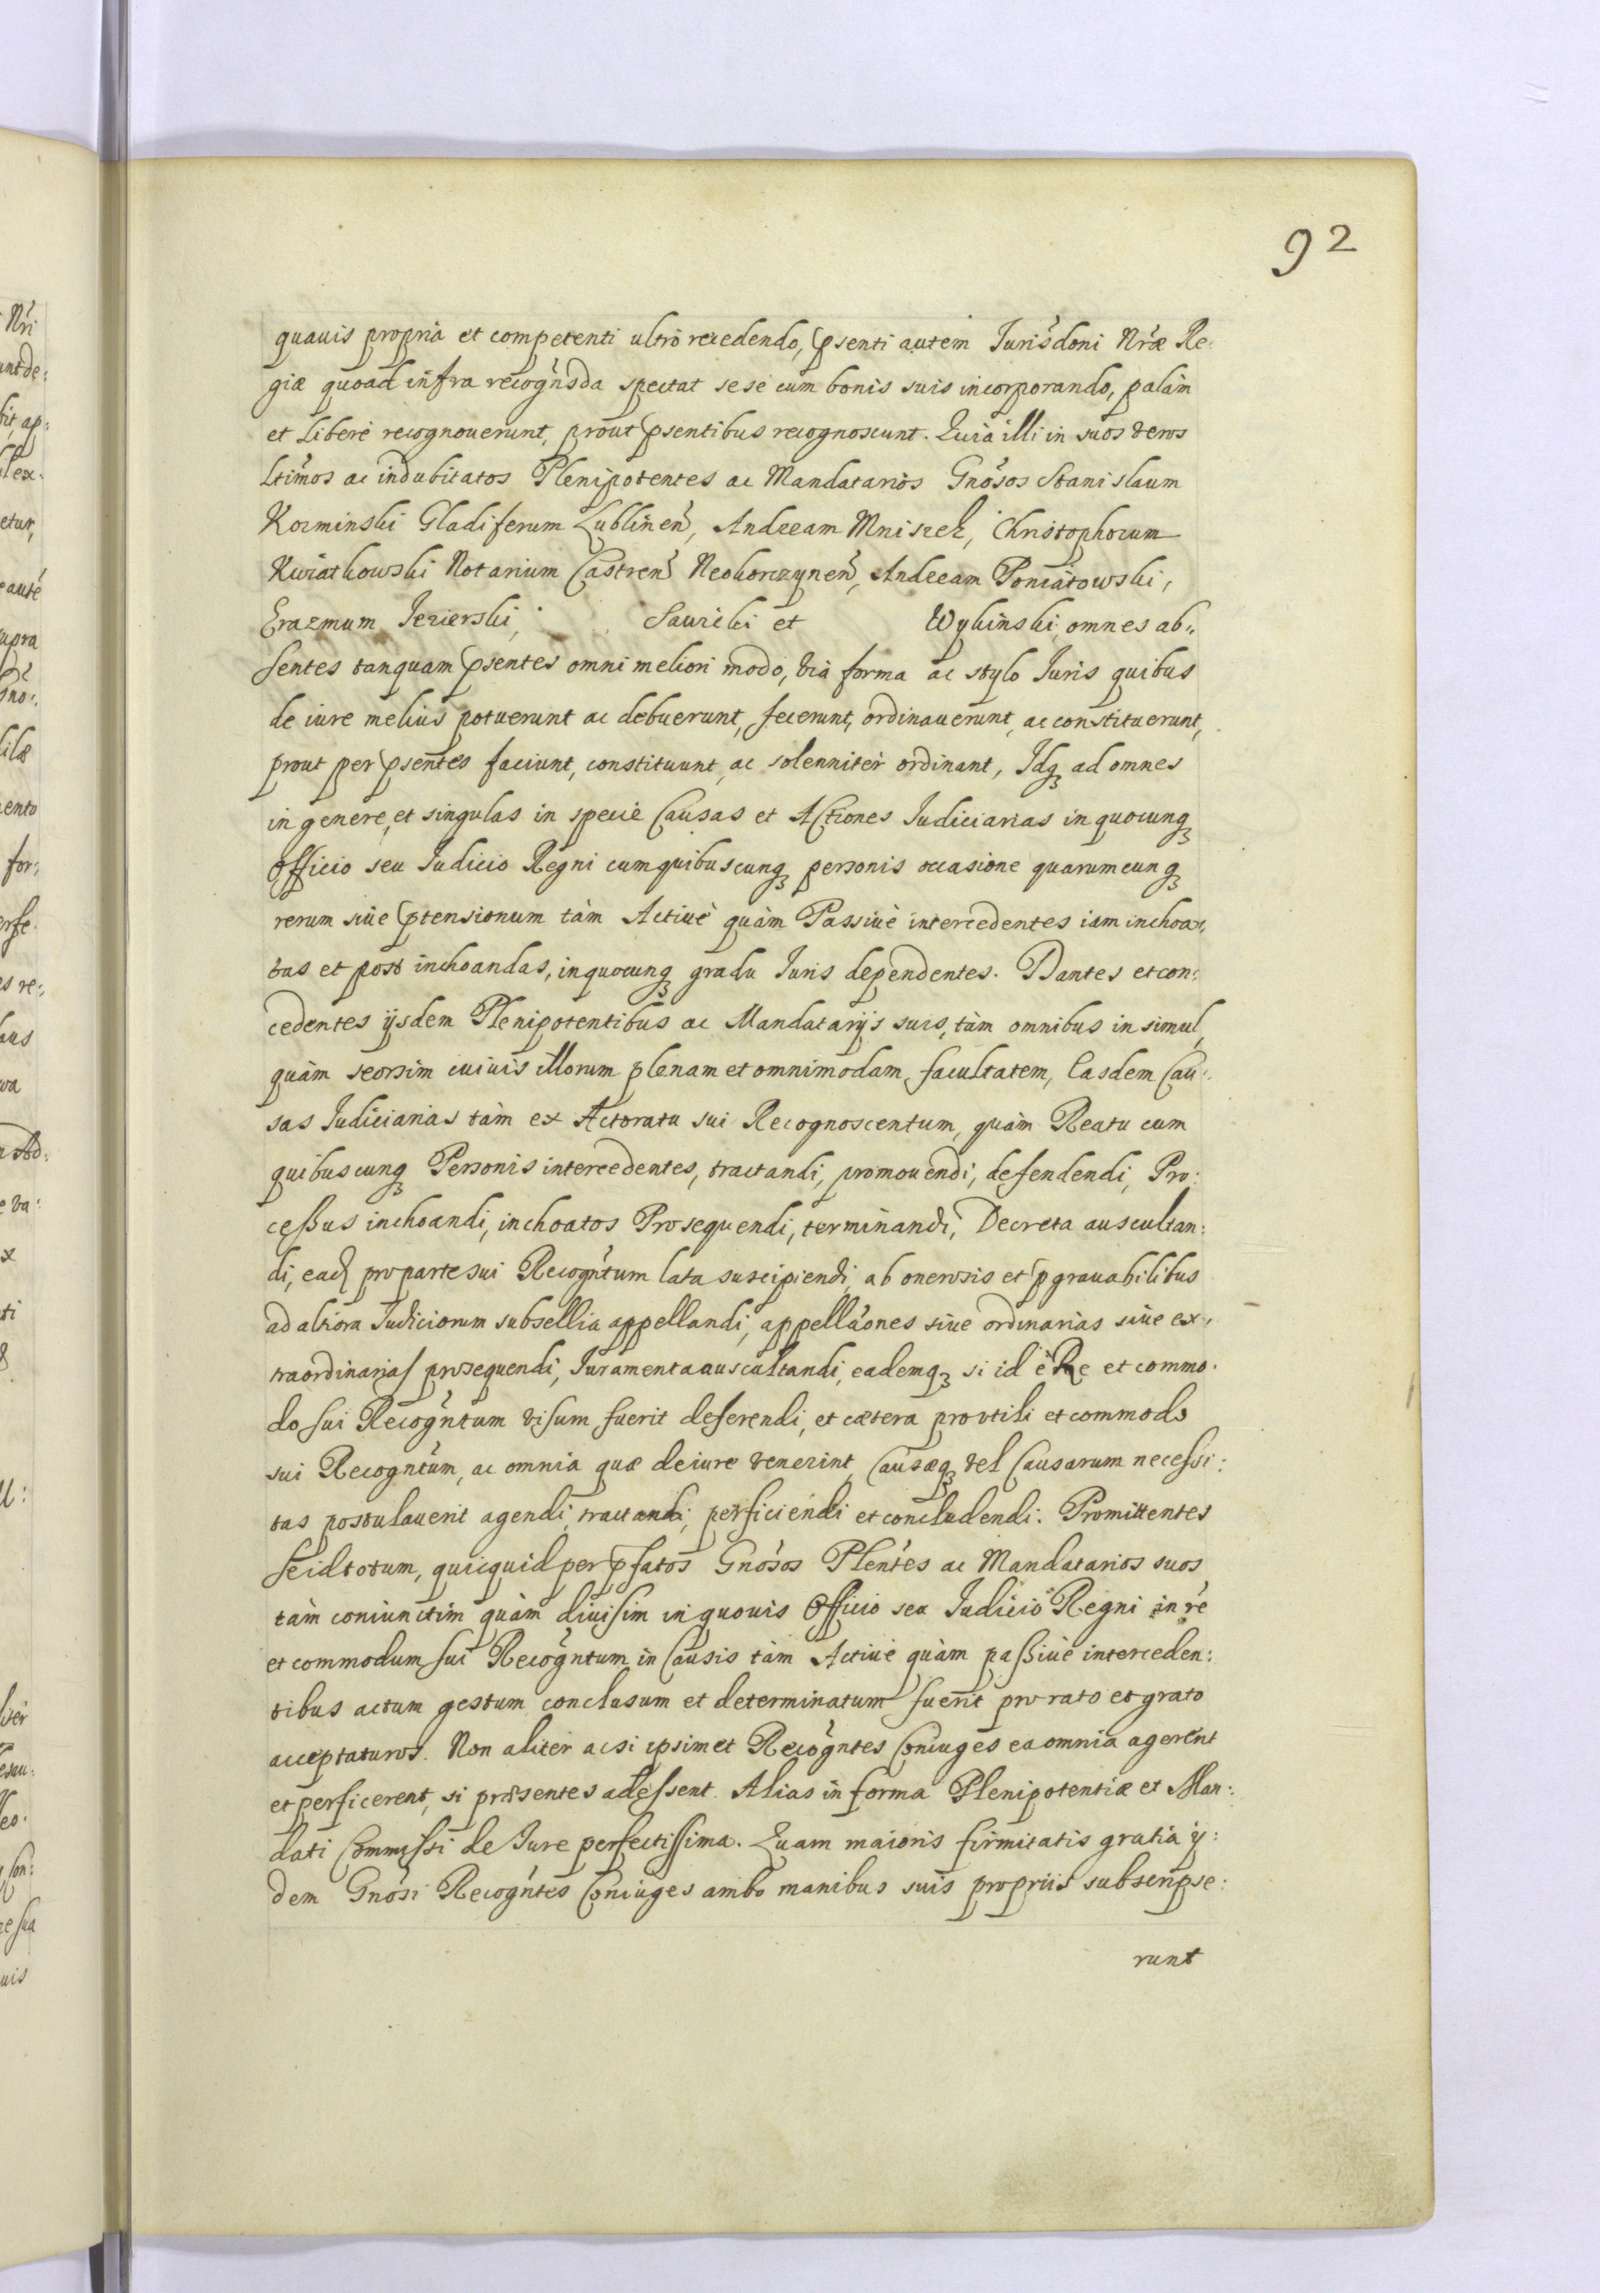 92
quavis propria et competenti ultro recedendo, psenti autem Jurisdoni Nrae Re:
giae quoad infra recognsda spectat sese cum bonis suis incorporando, palàm
et Liberè recognoverunt, prout psentibus recognoscunt. Quia illi in suos veros
Ltimos ac indubitatos Plenipotentes ac Mandatarios Gnosos Stanislaum
Kozminski Gladiferum Lublinen, Andream Mniszek, Christophorum
Kwiatkowski Notarium Castren Neokorczynen, Andream Poniatowski,
Erazmum Jezierski, Sawicki et Wykinski omnes ab:
sentes tanquam psentes omni meliori modo, via forma ac stylo Juris quibus
de iure melius potuerunt ac debuerunt, fecerunt, ordinaverunt, ac constituerunt,
prout per psentes faciunt, constituunt, ac solenniter ordinant, Idq ad omnes
in genere, et singulas in specie Causas et Actiones Judiciarias in quocunq
Officio seu Judicio Regni cum quibuscunq personis occasione quarumcunq
rerum sive ptensionum tàm Activè quàm Passivè intercedentes iam inchoa:
tas et post inchoandas, in quocunq gradu Juris dependentes. Dantes et con:
cedentes ijsdem Plenipotentibus ac Mandatarijs suis, tàm omnibus in simul,
quàm seorsim cuivis illorum plenam et omnimodam facultatem, Easdem Cau:
sas Judiciarias tàm ex Actoratu sui Recognoscentum, quàm Reatu cum
quibuscunq Personis intercedentes, tractandi, promovendi, defendendi, Pro:
cessus inchoandi, inchoatos Prosequendi, terminandi, Decreta auscultan:
di, eaq pro parte sui Recogntum lata suscipiendi, ab onerosis et pgravabilibus
ad altiora Judiciorum subsellia appellandi, appellaones sive ordinarias sive ex:
traordinarias prosequendi, Juramenta auscultandi, eademq si id è Re et commo:
do sui Recogntum visum fuerit deferendi, et caetera pro utili et commodo
sui Recogntum, ac omnia quae de iure venerint, Causaeq vel Causarum necessi:
tas postulaverit agendi, tractandi, perficiendi et concludendi. Promittentes
se id totum, quicquid per pfatos Gnosos Plentes ac Mandatarios suos
tàm coniunctim quàm divisim in quovis Officio seu Judicio Regni in re
et commodum sui Recogntum in Causis tàm Activè quàm passivè interceden:
tibus actum gestum conclusum et determinatum fuerit pro rato et grato
accaptaturos. Non aliter ac si ipsimet Recogntes Coniuges ea omnia agerent
et perficerent, si praesentes adessent. Alias in forma Plenipotentiae et Man:
dati Commissi de Jure perfectissima. Quam maioris firmitatis gratia ij:
dem Gnosi Recogntes Coniuges ambo manibus suis propriis subscripse:
runt